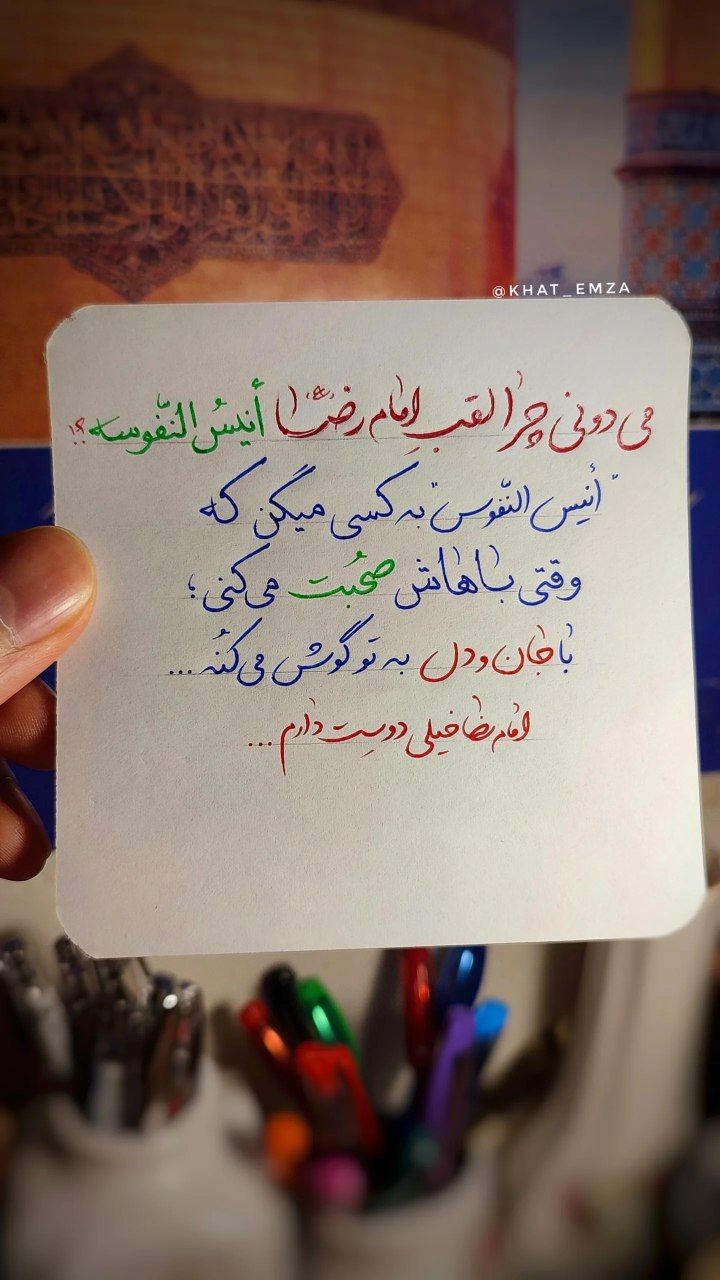 @KHAT_EMZA
می دونی چرا لقبِ امام رضّا أنیسُ النّفوسه؟!
"أنیس النّفوس" به کسی میگن که
وقتی باهاش صحُبت می‌کنی؛
با جان و دل به تو گوش می‌کنُه...
امام رضا خیلی دوسِت دارم...